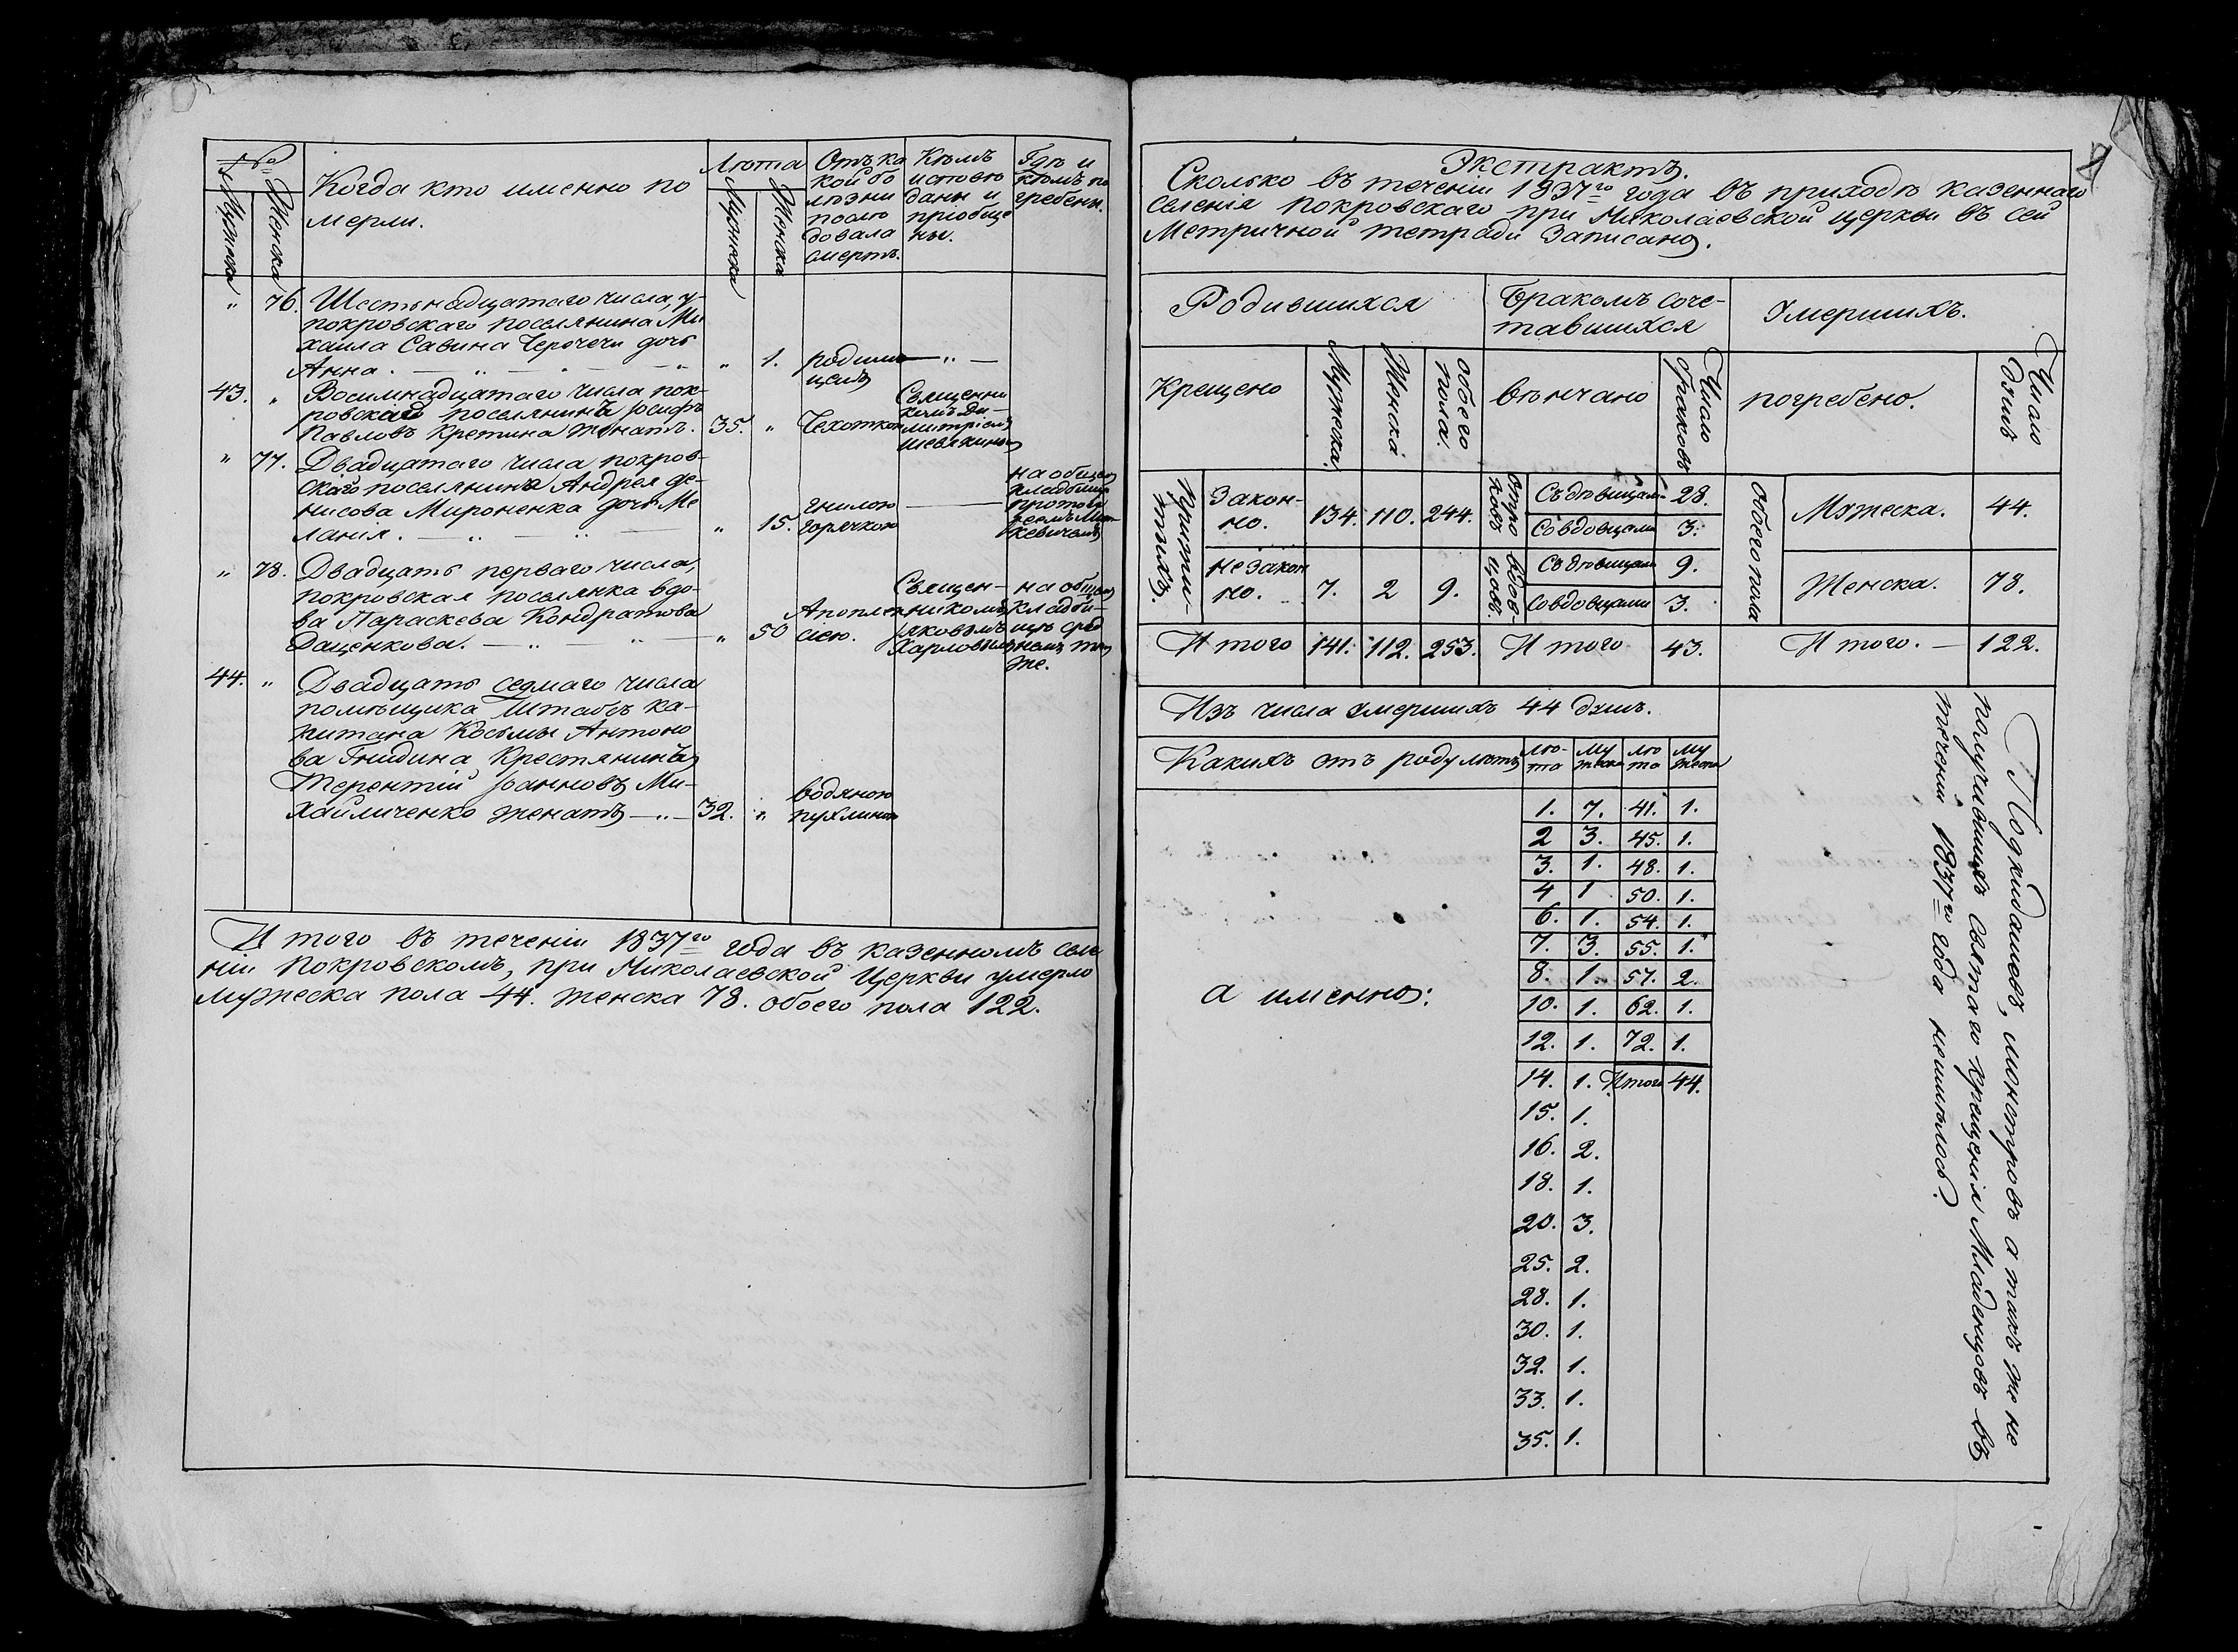 №
Мужеска
Женска
Когда кто именно по
мерли.
Лѣта
Мужеска
Женска
Отъ ка
кой бо
лѣзни
послѣ
довала
смерть.
Кѣмъ
исповѣ
даны и
приобще
ны.
Гдѣ и
кѣмъ по
гребены.
" 76. Шестьнадцатаго числа, у
покровскаго поселянина Ми
хаила Савина дочь
Анна. — " — " — " " 1. родим
цемъ — " —
43. " Восимнадцатаго числа пок-
ровскаго поселянинъ Іосифъ
Павловъ Кретина женатъ. 35. " Чехоткою
Священни
комъ Ди-
митріемъ
" 77. Двадцатаго числа покров-
скаго поселянина Андрея Де-
нисова Мироненка дочь Ме
ланія. — " — " — " 15. гнилою
горячкою
—
на общем
кладбище
протоіе
реемъ
" 78. Двадцать перваго числа,
покровская поселянка вдо-
ва Параскева Кондратова
Даценкова. — " — " — " 50 Апоплек
сіею.
Священ-
никомъ
Іяковомъ
Карповымъ
на общем
кладби-
щѣ
же.
44. " Двадцать седмаго числа
помѣщика Штабсъ ка-
питана Косьмы Антоно
ва Гнидина Крестянинъ
Терентій Іоанновъ Ми-
хайличенко женатъ — " — 32. " водяною
пухлиною
И того въ теченіи 1837го года въ казенномъ селе
ніи Покровскомъ, при Николаевской Церкви умерло
мужеска пола 44. женска 78. обоего пола 122.
Экстрактъ.
Сколько въ теченіи 1837го года въ приходѣ казеннаго
селенія покровскаго при Николаевской церкви въ сей
Метричной тетради Записано.
Родившихся
Бракомъ соче-
тавшихся
Умершихъ.
Крещено
Мужеска.
Женска
обоего
пола.
вѣнчано
Число
браковъ
погребено.
Число
душъ
Закон-
но. 134. 110. 244.
не закон
но. 7. 2 9.
отро
ковъ
Съ дѣвицами 28.
Со вдовцами 3.
вдов-
цовъ.
Съ дѣвицами 9.
Со вдовцами 3.
обоего пола
Мужеска. 44.
Женска. 78.
И того 141. 112. 253. И того 43. И того. — 122.
Изъ числа умершихъ 44 душъ.
Какихъ отъ роду лѣтъ
Лѣ-
та
Му
жеска
лѣ
та
Му
жеска
а именно:
1. 7. 41. 1.
2 3. 45. 1.
3. 1. 48. 1.
4 1 50. 1.
6. 1. 54. 1.
7. 3. 55. 1.
8. 1. 57. 2.
10. 1. 62. 1.
12. 1. 72. 1.
14. 1. Итого 44.
15. 1.
16. 2.
18. 1.
20. 3.
25. 2.
28. 1.
30. 1.
32. 1.
33. 1.
35. 1.
Подкидышевъ, монстровъ а такъ же не
получившихъ Святаго крещенія Младенцовъ въ
теченіи 1837го года неимѣлось.